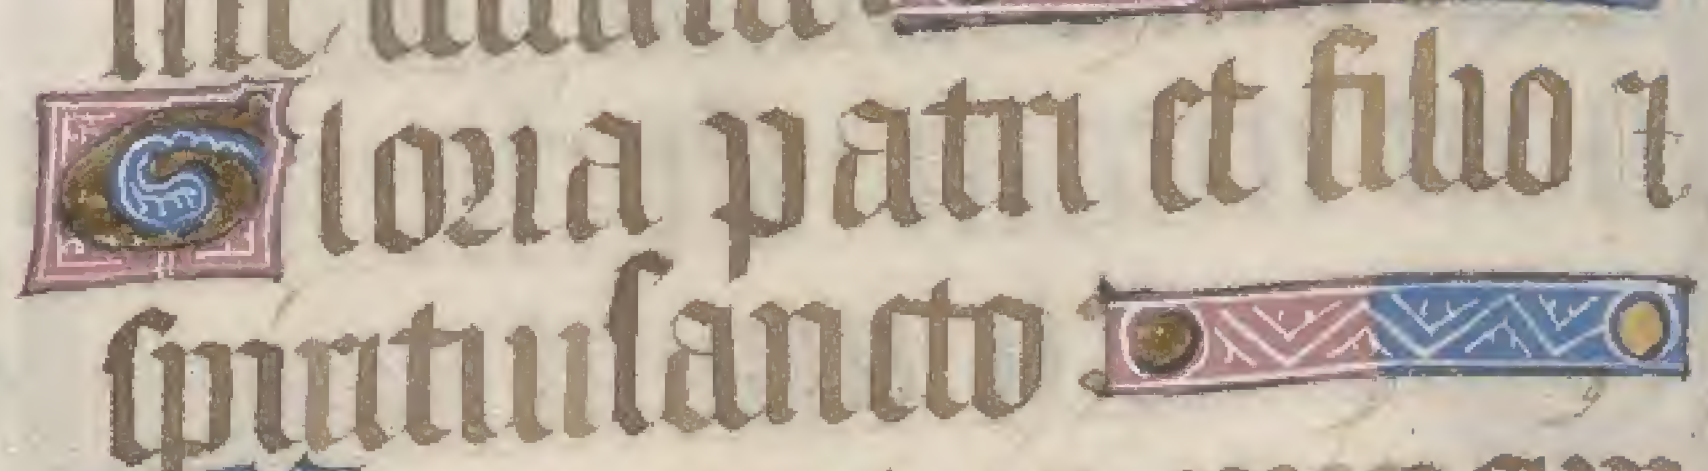 Gloria patri et filio ⁊
spiritui sancto